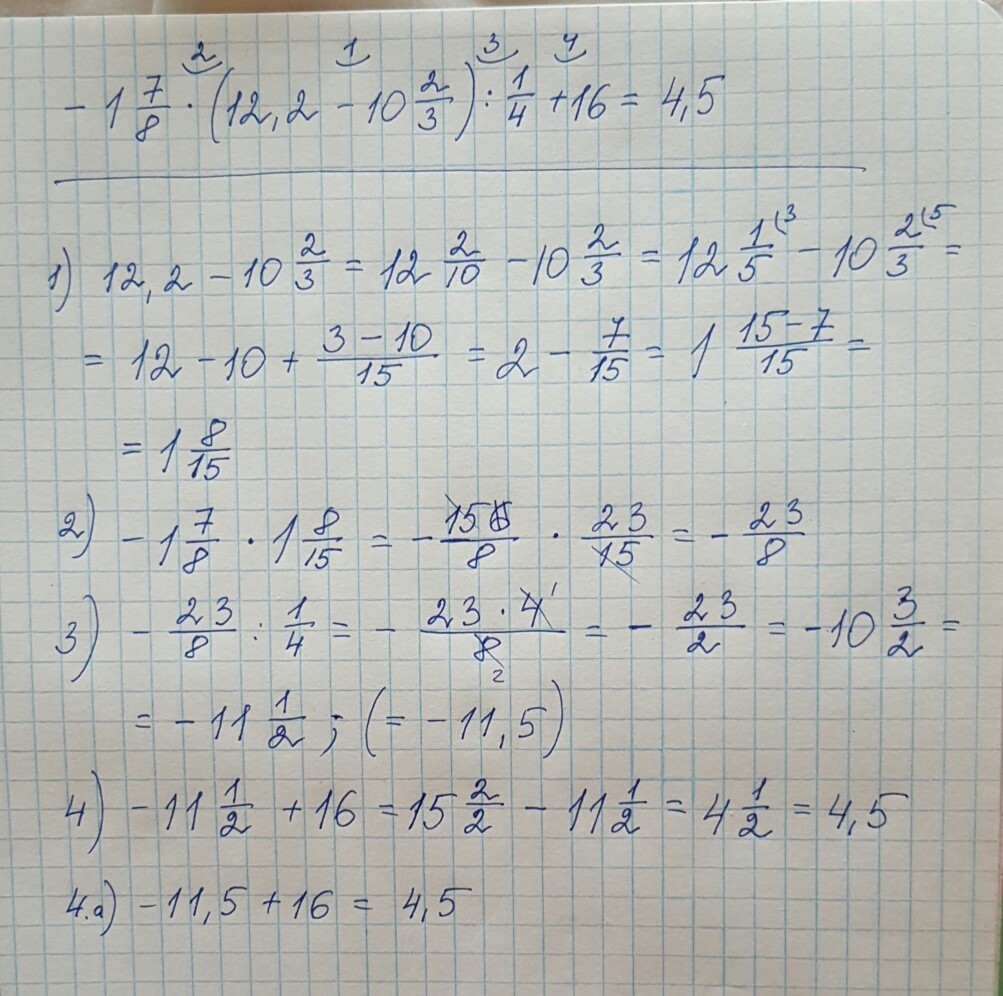 2 1 3 4
- 1 7/8 · (12,2 - 10 2/3) : 1/4 + 16 = 4,5
1) 12,2 - 10 2/3 = 12 2/10 - 10 2/3 = 12 1/5 (3 - 10 2/3 (5 =
= 12 - 10 + (3 - 10)/15 = 2 - 7/15 = 1 (15 - 7)/15 =
= 1 8/15
2) - 1 7/8 · 1 8/15 = - 15/8 · 23/15 = - 23/8
3) - 23/8 : 1/4 = - (23 · 4 1)/(8 2) = - 23/2 = - 10 3/2 =
= - 11 1/2 ; (= - 11,5)
4) - 11 1/2 + 16 = 15 2/2 - 11 1/2 = 4 1/2 = 4,5
4.а) - 11,5 + 16 = 4,5